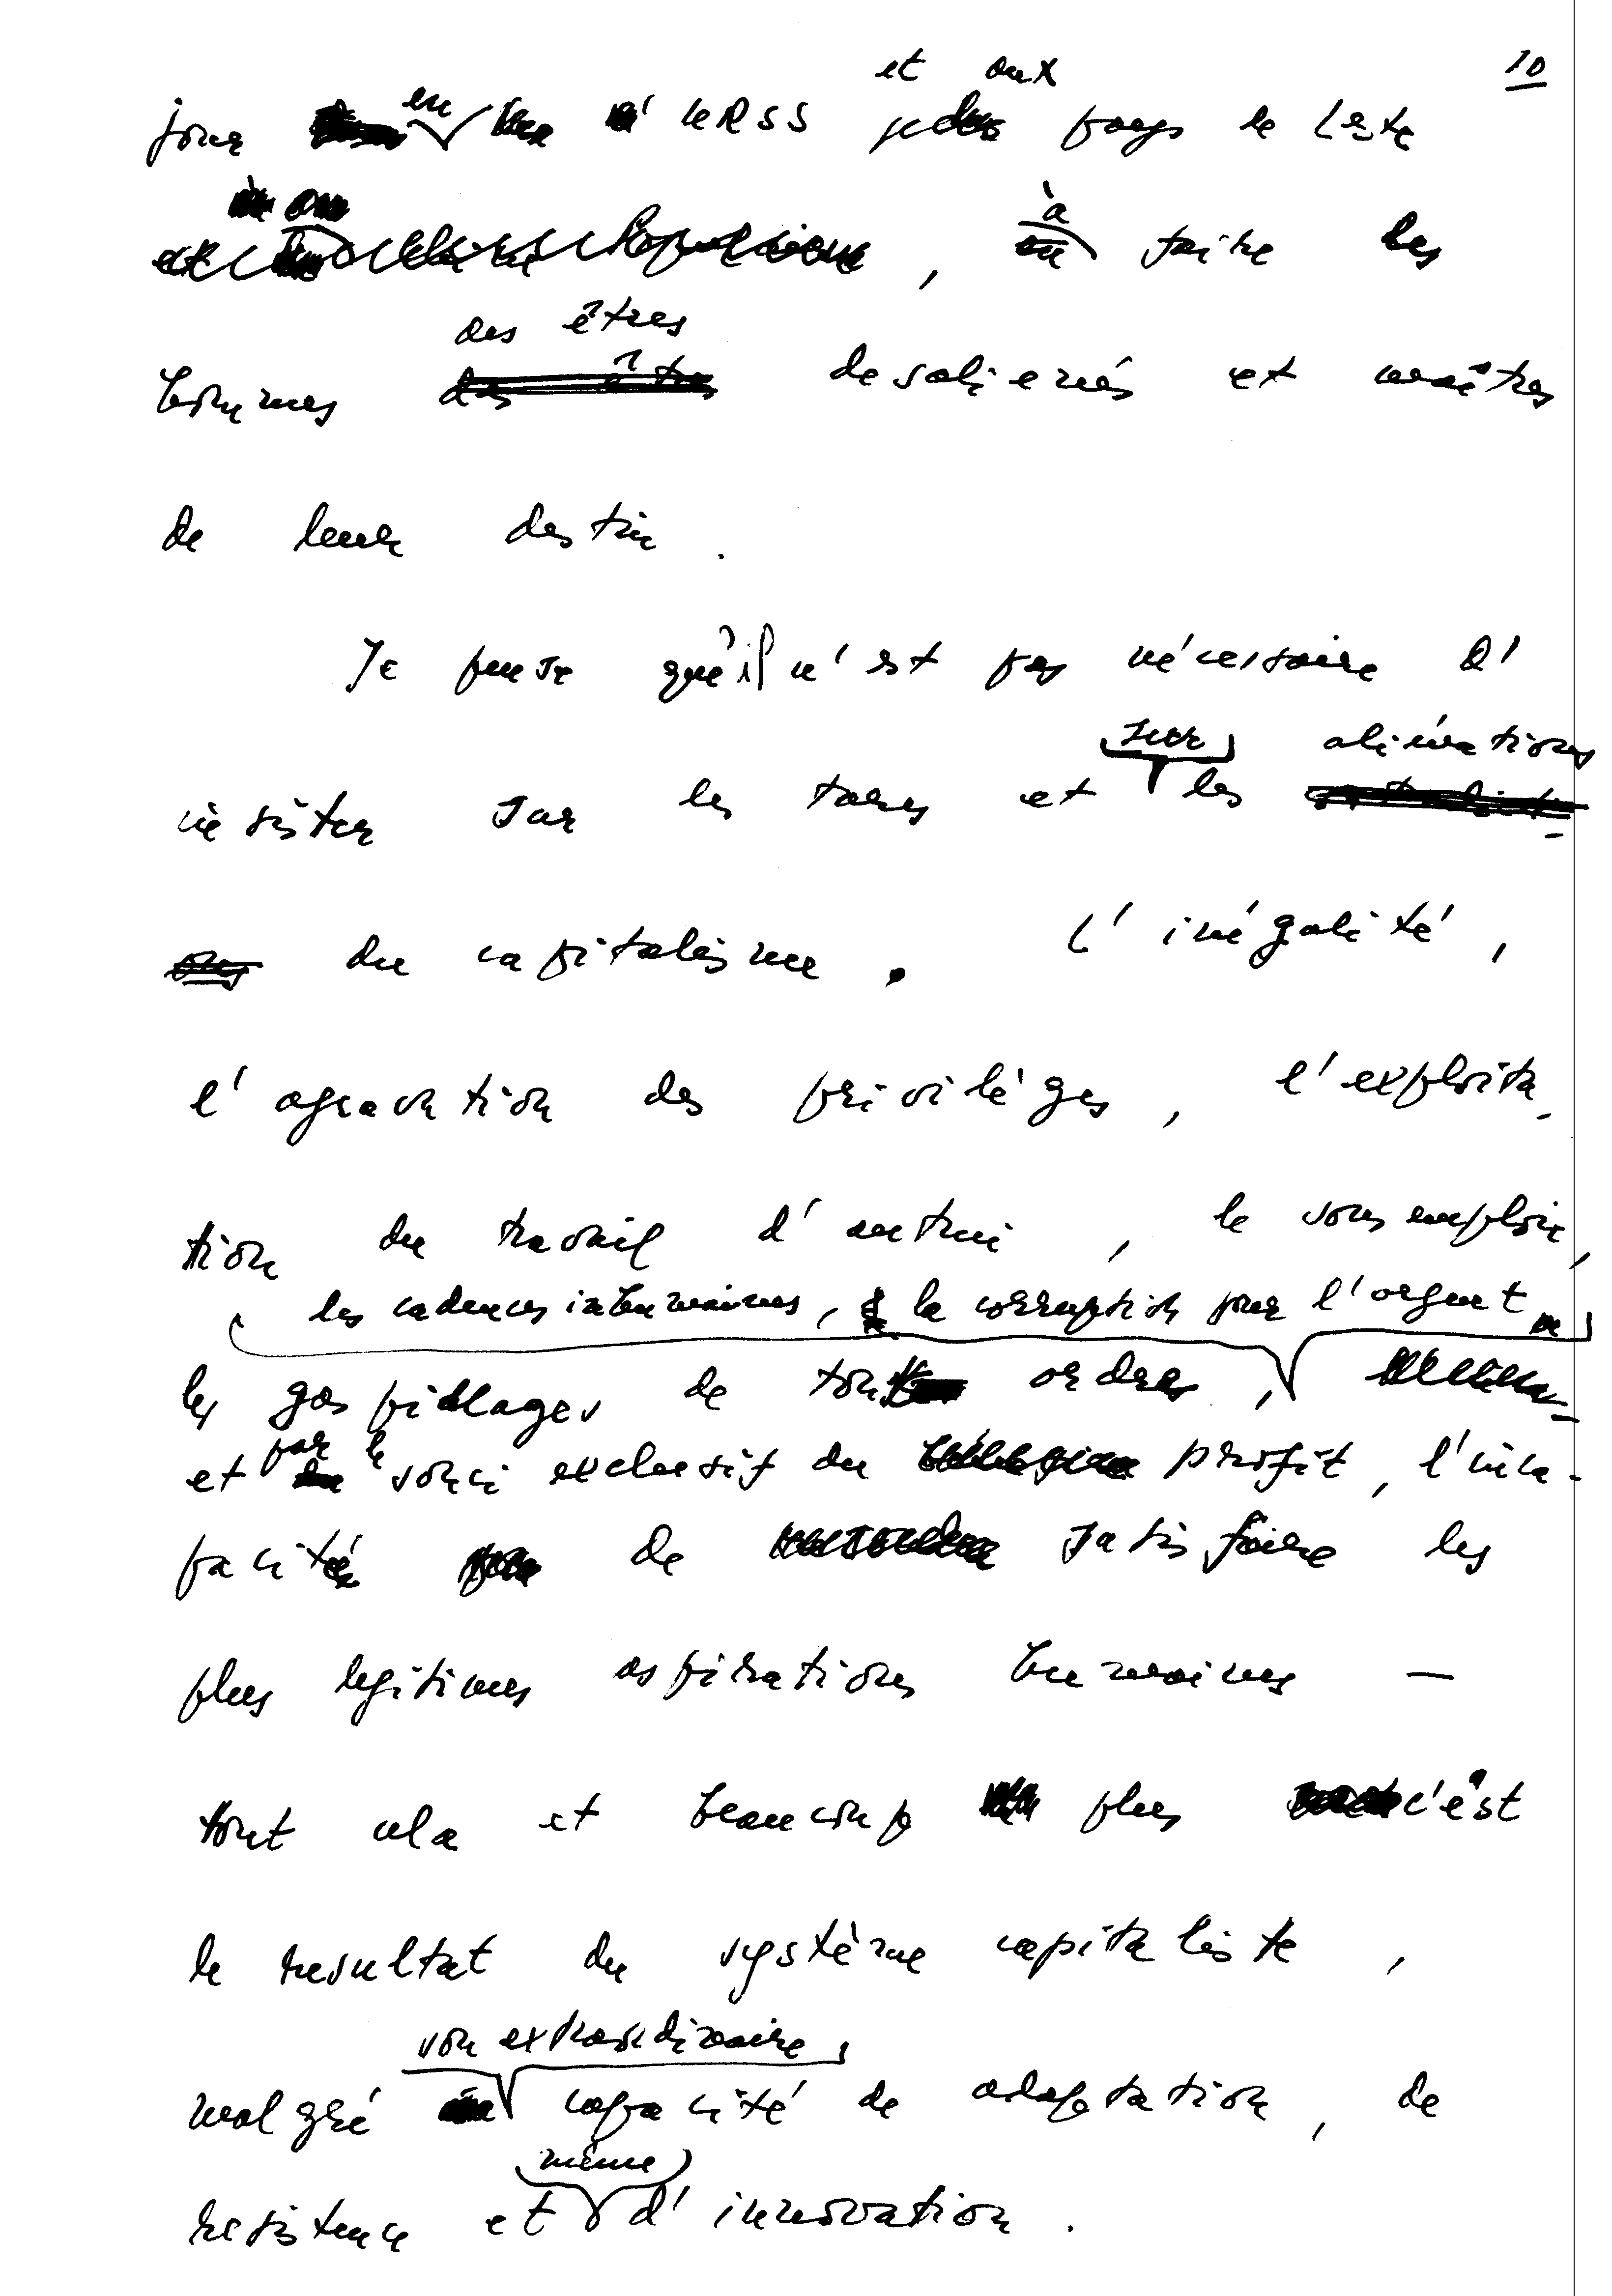 10
et aux
jour en URSS pays de l'este
à
, faire des
des êtres
hommes des êtres desalienés et maîtres
de leur destin.
Je pense qu'il n'est pas nécessaire d'
sur aliénations
insister sur les tares et les
du capitalisme. L'inégalité,
l'agravation des privilèges, l'exploita-
tion du travail d'autrui, le sous emploi,
les cadences inhumaines, la corruption par l'argent
les gaspillages de tout ordres,
et par le souci exclusif du profit, l'inca-
pacité de satisfaire les
plus legitimes aspirations humaines —
tout cela et beaucoup plus c'est
le resultat du système capitaliste,
son extraordinaire
malgré capacité de adaptation, de
même
resistence et d'innovation.